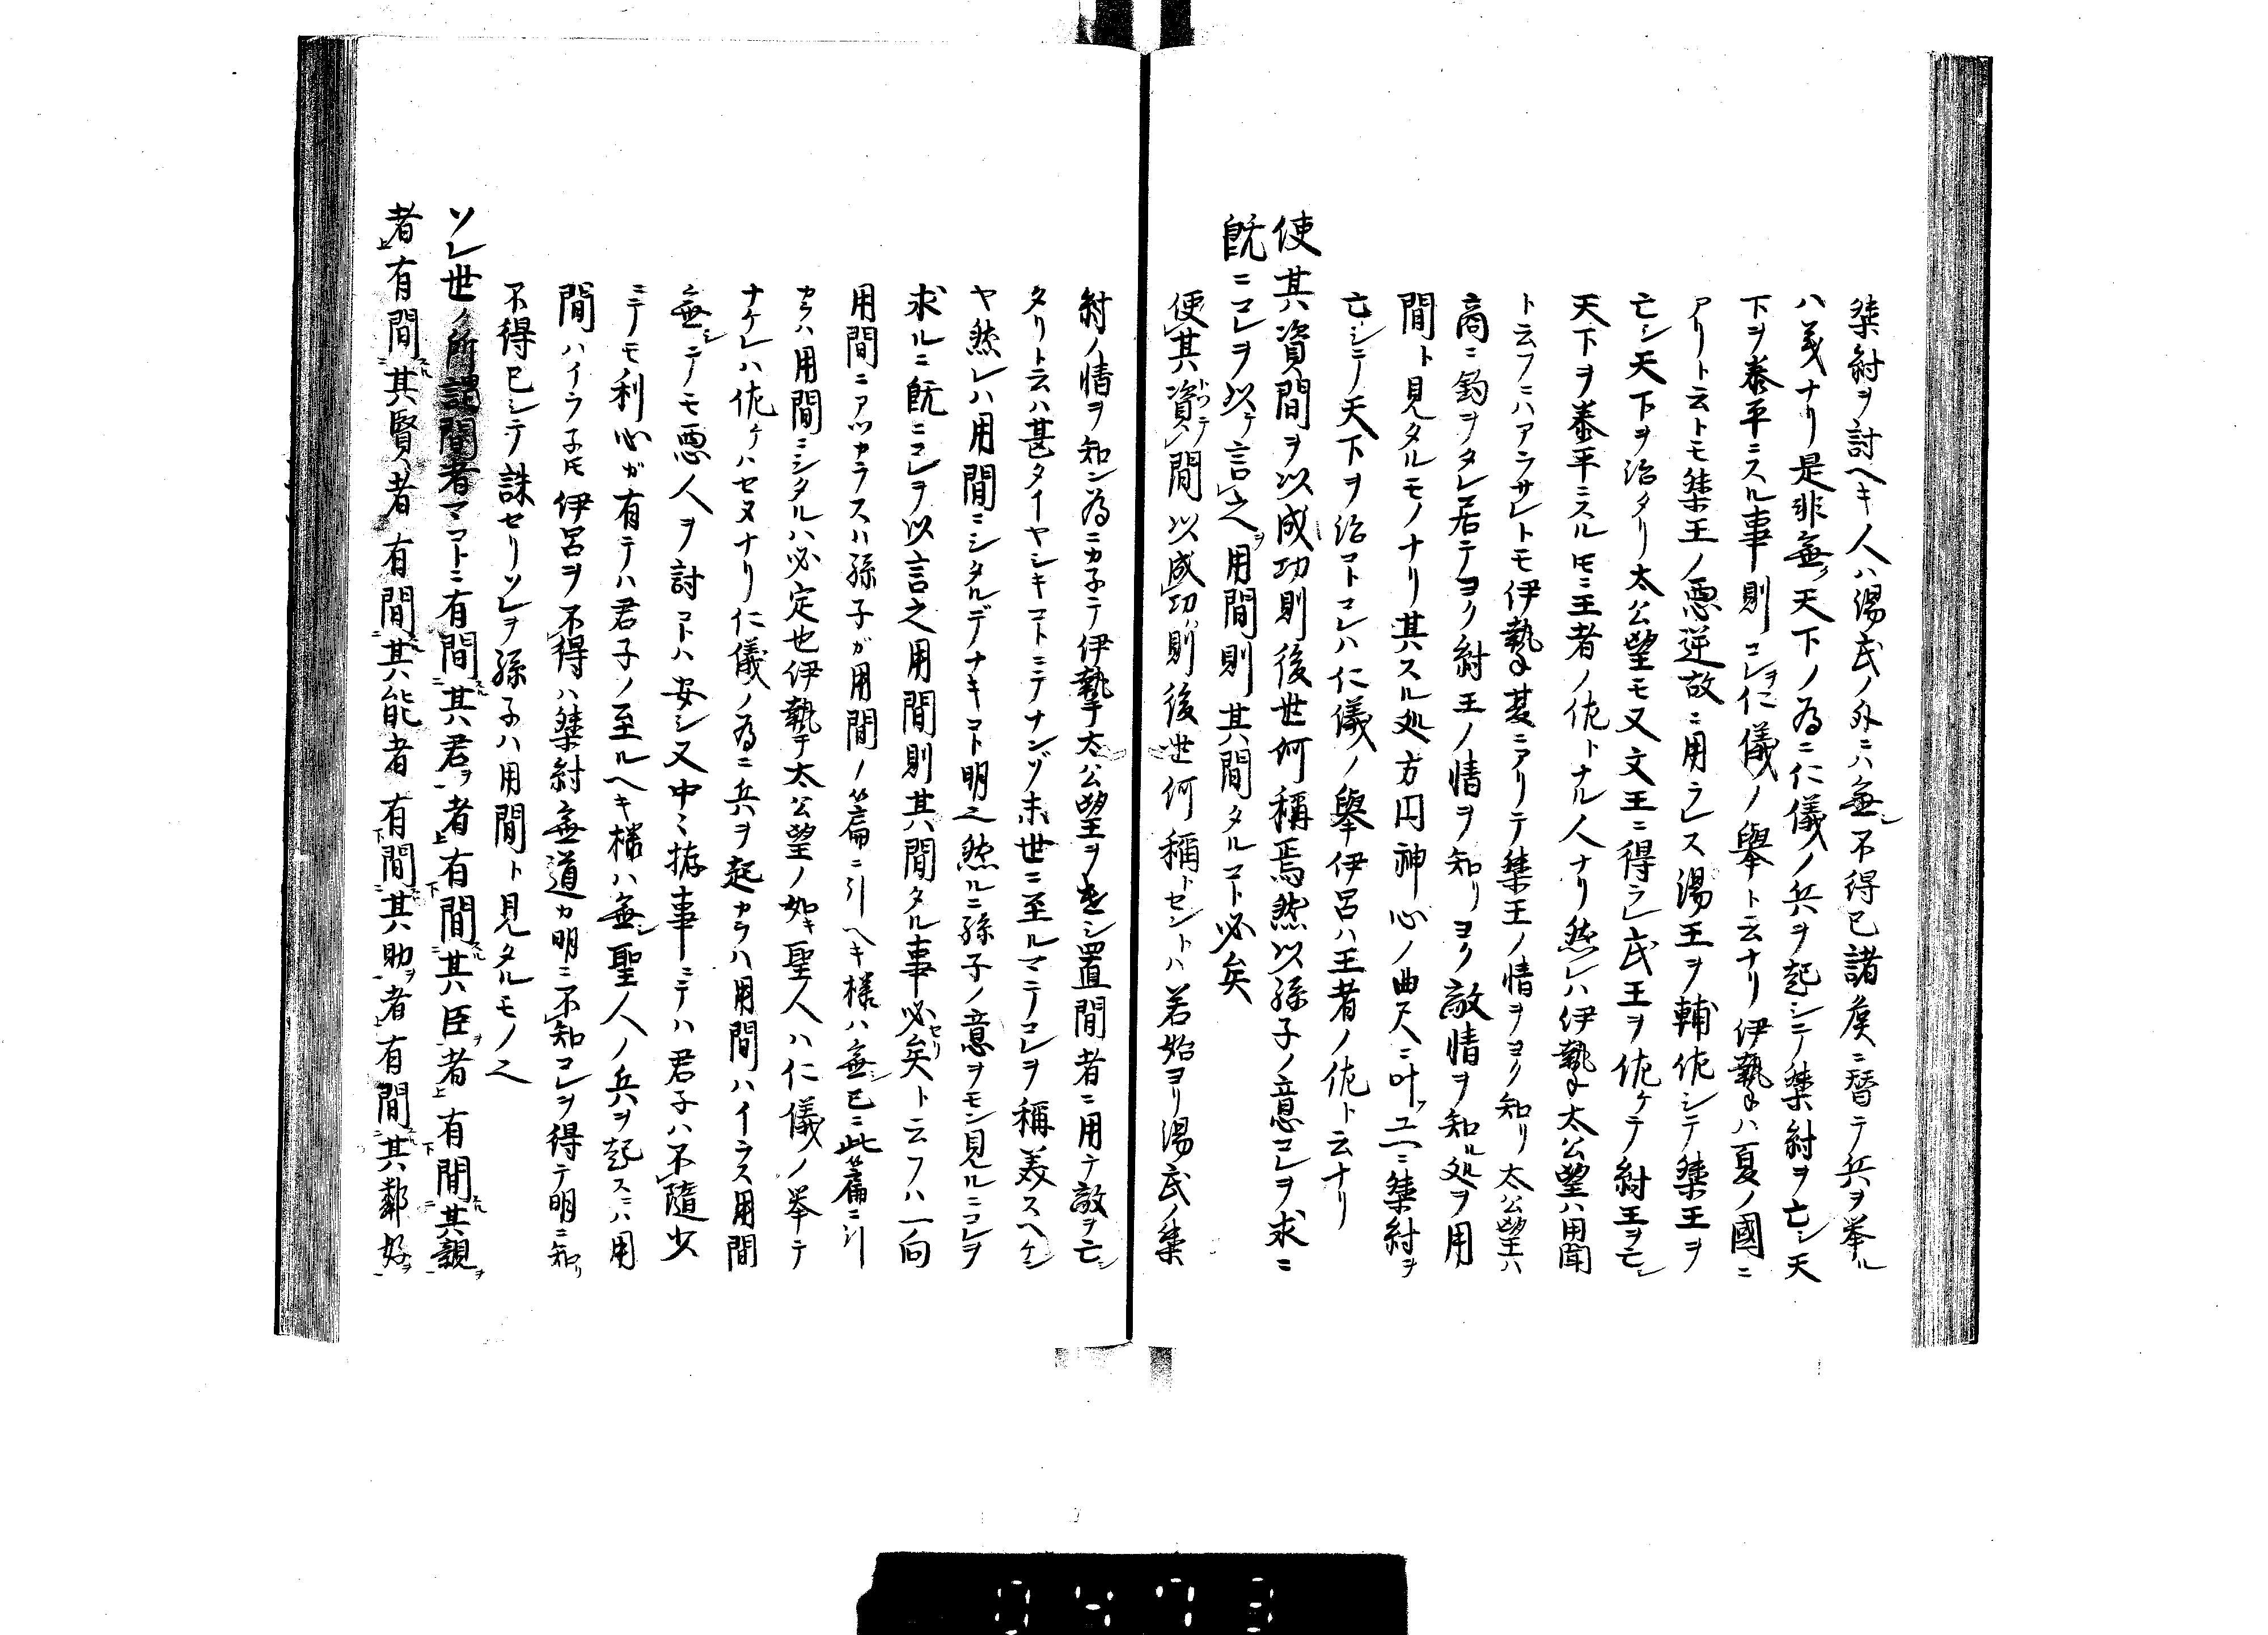 桀紂ヲ討ヘキ人ハ湯武ノ外ニハ無シ不得已諸矦ニ替テ兵ヲ挙ル
ハ義ナリ是非無ク天下ノ為ニ仁儀ノ兵ヲ起シテ桀紂ヲ亡シ天
下ヲ泰平ニスル事則コレヲ仁儀ノ舉ト云ナリ伊摯ハ夏ノ國ニ
アリト云トモ桀王ノ悪逆故ニ用ラレス湯王ヲ輔佐シテ桀王ヲ
亡シ天下ヲ治タリ太公望モ又文王ニ得ラレ武王ヲ佐ケテ紂王ヲ亡シ
天下ヲ泰平ニスル𪜈ニ王者ノ佐トナル人ナリ然レハ伊摯太公望ハ用間
ト云フニハアラサレトモ伊摯夏ニアリテ桀王ノ情ヲヨク知リ太公望ハ
商ニ釣ヲタレ居テヨク紂王ノ情ヲ知リヨク敵情ヲ知ル処ヲ用
間ト見タルモノナリ其スル処方円神心ノ曲尺ニ叶フユヘニ桀紂ヲ
亡シテ天下ヲ治コトコレハ仁儀ノ舉伊呂ハ王者ノ佐ト云ナリ
使其資間ヲ以成功則後世何稱焉然以孫子ノ意コレヲ求ニ
既ニコレヲ以テ言之ヲ用間則其間タルコト必矣
使其資トツテ間以成功則後世何稱トセントハ若始ヨリ湯武ノ桀
紂ノ情ヲ知ン為ニカ子テ伊摯太公望ヲ置間者ニ用テ敵ヲ亡シ
タリト云ハ甚タイヤシキコトニテナンゾ末世ニ至ルマテコレヲ稱美スヘケン
ヤ然レハ用間ニシタルデナキコト明之然ルニ孫子ノ意ヲモン見ルニコレヲ
求ルニ既ニコレヲ以言之用間則其間タル事必セリ矣ト云フハ一向
用間ニアツカラスハ孫子ガ用間ノ篇ニ引ヘキ様ハ無シ已ニ此篇ニ引
カラハ用間ニシタルハ必定也伊摯太公望ノ如キ聖人ハ仁儀ノ挙テ
ナケレハ佐ケハセヌナリ仁儀ノ為ニ兵ヲ起カラハ用間ハイラス用間
無シテモ悪人ヲ討コトハ安シ又中〻旅事ニテハ君子ハ不隨少
ニテモ利心ガ有テハ君子ノ至ルヘキ様ハ無シ聖人ノ兵ヲ起スニハ用
間ハイラ子𪜈伊呂ヲ不得ハ桀紂無道カ明ニ不知コレヲ得テ明ニ知リ
不得已シテ誅セリソレヲ孫子ハ用間ト見タルモノ之
ソレ世ノ所謂間者マコトニ有間其君ヲ者有間其臣ヲ者有間其親ヲ
者有間其賢者有間其能者有間其助ヲ者有間其鄰好ヲ